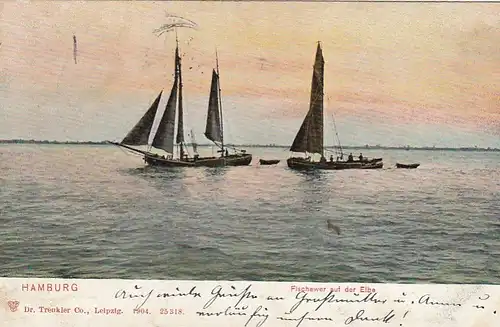 HAMBURG
Fischewer auf der Elbe
Dr. Trenkler Co., Leipzig. 1904. 25318.
Auch viele Grüße an Großmutter u. Anna u.
vorläufig unsern Dank!